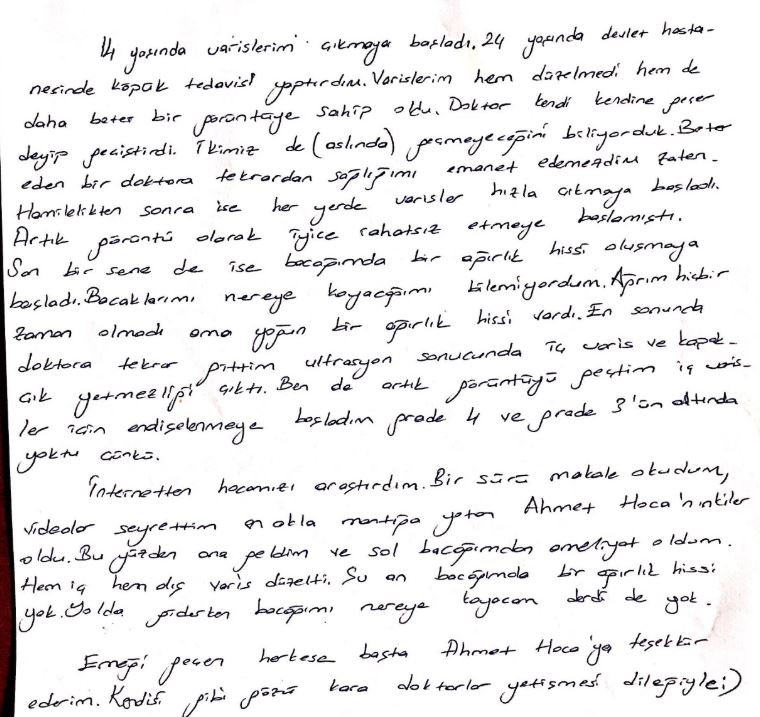 14 yaşında varislerim çıkmaya başladı. 24 yaşında devlet hasta-
nesinde köpük tedavisi yaptırdım. Varislerim hem düzelmedi hem de
daha beter bir görüntüye sahip oldu. Doktor kendi kendine geçer
deyip geçiştirdi. İkimiz de (aslında) geçmeyeceğini biliyorduk. Beter
eden bir doktora tekrardan sağlığımı emanet edemezdim zaten.
Hamilelikten sonra ise her yerde varisler hızla çıkmaya başladı.
Artık görüntü olarak iyice rahatsız etmeye başlamıştı.
Son bir sene de ise bacağımda bir ağırlık hissi oluşmaya
başladı. Bacaklarımı nereye koyacağımı bilemiyordum. Ağrım hiçbir
zaman olmadı ama yoğun bir ağırlık hissi vardı. En sonunda
doktora tekrar gittim ultrasyon sonucunda iç varis ve kapak-
çık yetmezliği çıktı. Ben de artık görüntüyü geçtim iç varis-
ler için endişelenmeye başladım grade 4 ve grade 3'ün altında
yoktu çünkü.
İnternetten hocamızı araştırdım. Bir sürü makale okudum,
videolar seyrettim en akla mantığa yatan Ahmet Hoca'nınkiler
oldu. Bu yüzden ona geldim ve sol bacağımdan ameliyat oldum.
Hem iç hem dış varis düzelti. Şu an bacağımda bir ağırlık hissi
yok. Yolda giderken bacağımı nereye koyacam derdi de yok.
Emeği geçen herkese başta Ahmet Hoca'ya teşekkür
ederim. Kendisi gibi gözü kara doktorlar yetişmesi dileğiyle :)